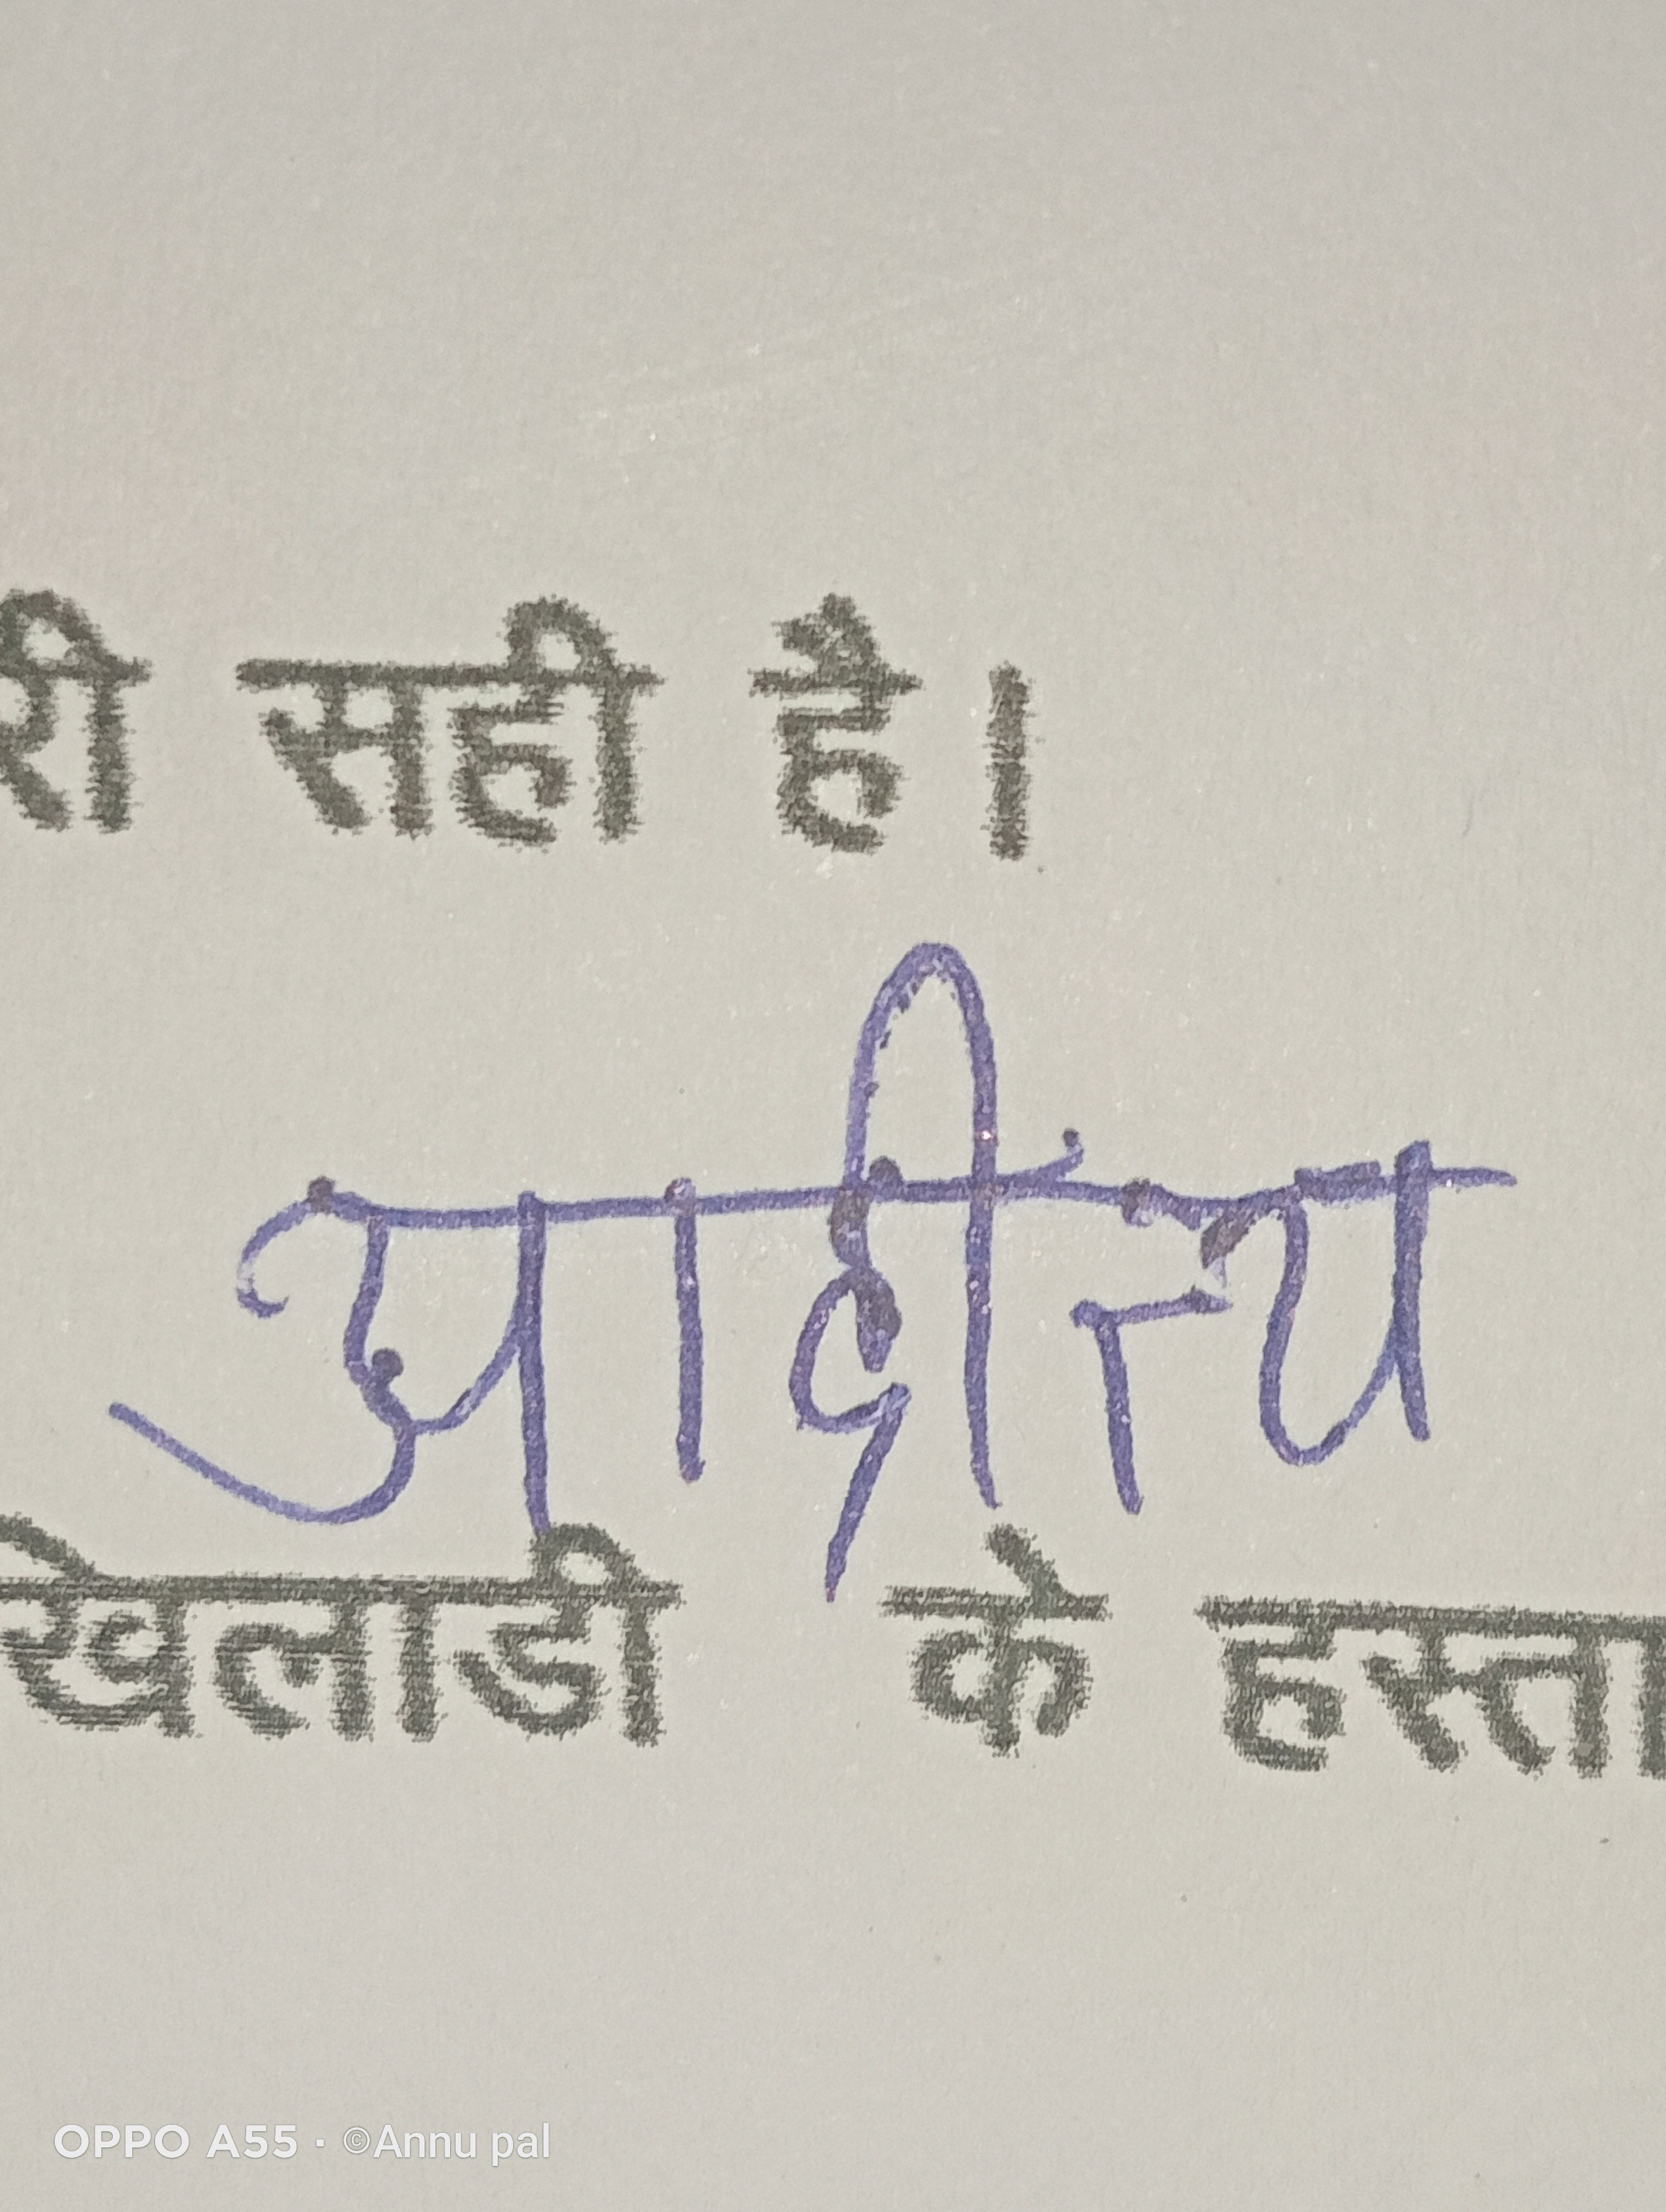 री सही है।
आदीत्य
खिलाडी के हस्ता
OPPO A55 · ©Annu pal